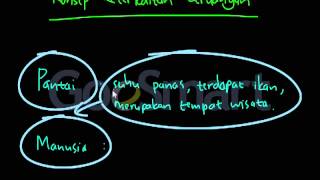 Konsep Keterkaitan Keruangan
Pantai
suhu panas, terdapat ikan,
merupakan tempat wisata.
Manusia :